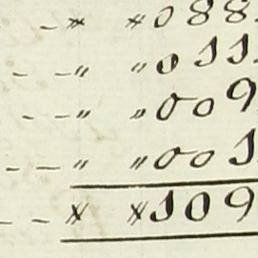 - - " " 088
- - " " 011
- - " " 009
- - " " 001
- - " " 109